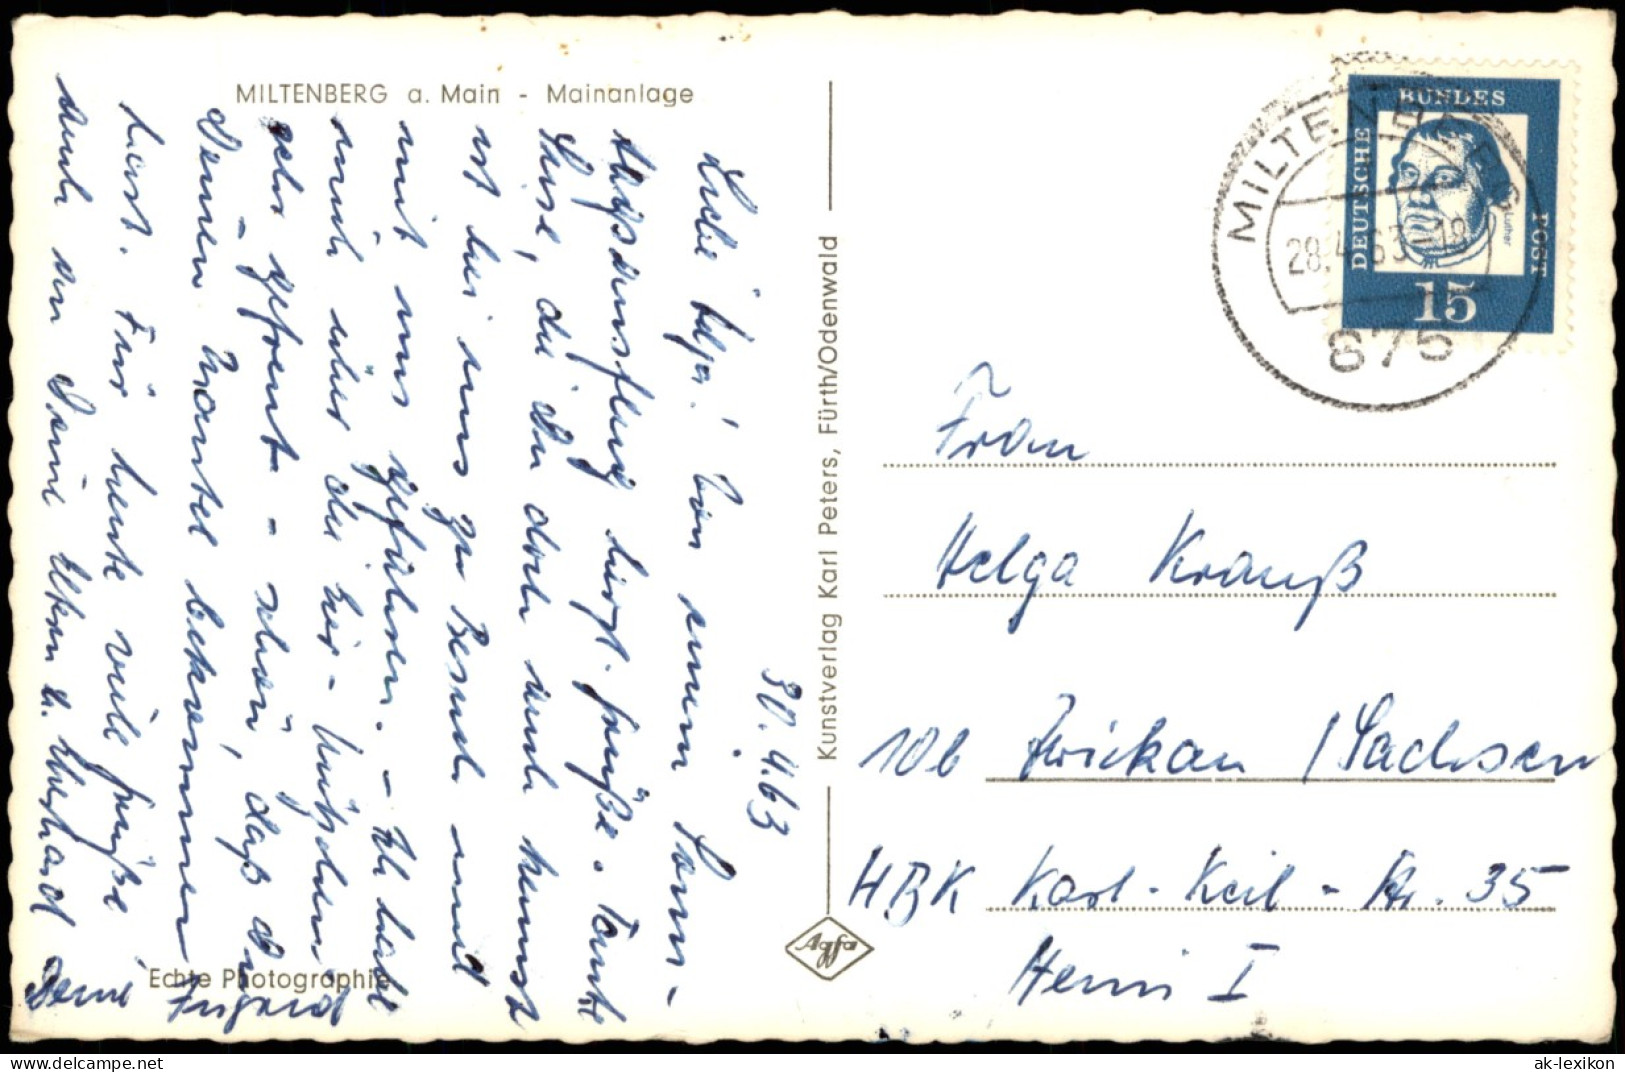 MILTENBERG a. Main - Mainanlage
30.4.63
Liebe Helga! Von einem Sonn-
tagsausflug liebe Grüße. Tante
Luise, die Du doch auch kennst
ist bei uns zu Besuch und
mit uns gefahren. - Ich habe
mich über die Eier-
sehr gefreut - schön, daß Du
Deinen Mantel bekommen
hast. Für heute viele Grüße
auch an Deine Eltern u. Eberhard
Deine Irmgard
Echte Photographie
Kunstverlag Karl Peters, Fürth/Odenwald
Agfa
DEUTSCHE BUNDES POST
Luther
15
MILTENBERG
28.4.63-18
875
Frau
Helga Krauß
10b Zwickau / Sachsen
HBK Karl-Keil-Str. 35
Heim I
ak-lexikon